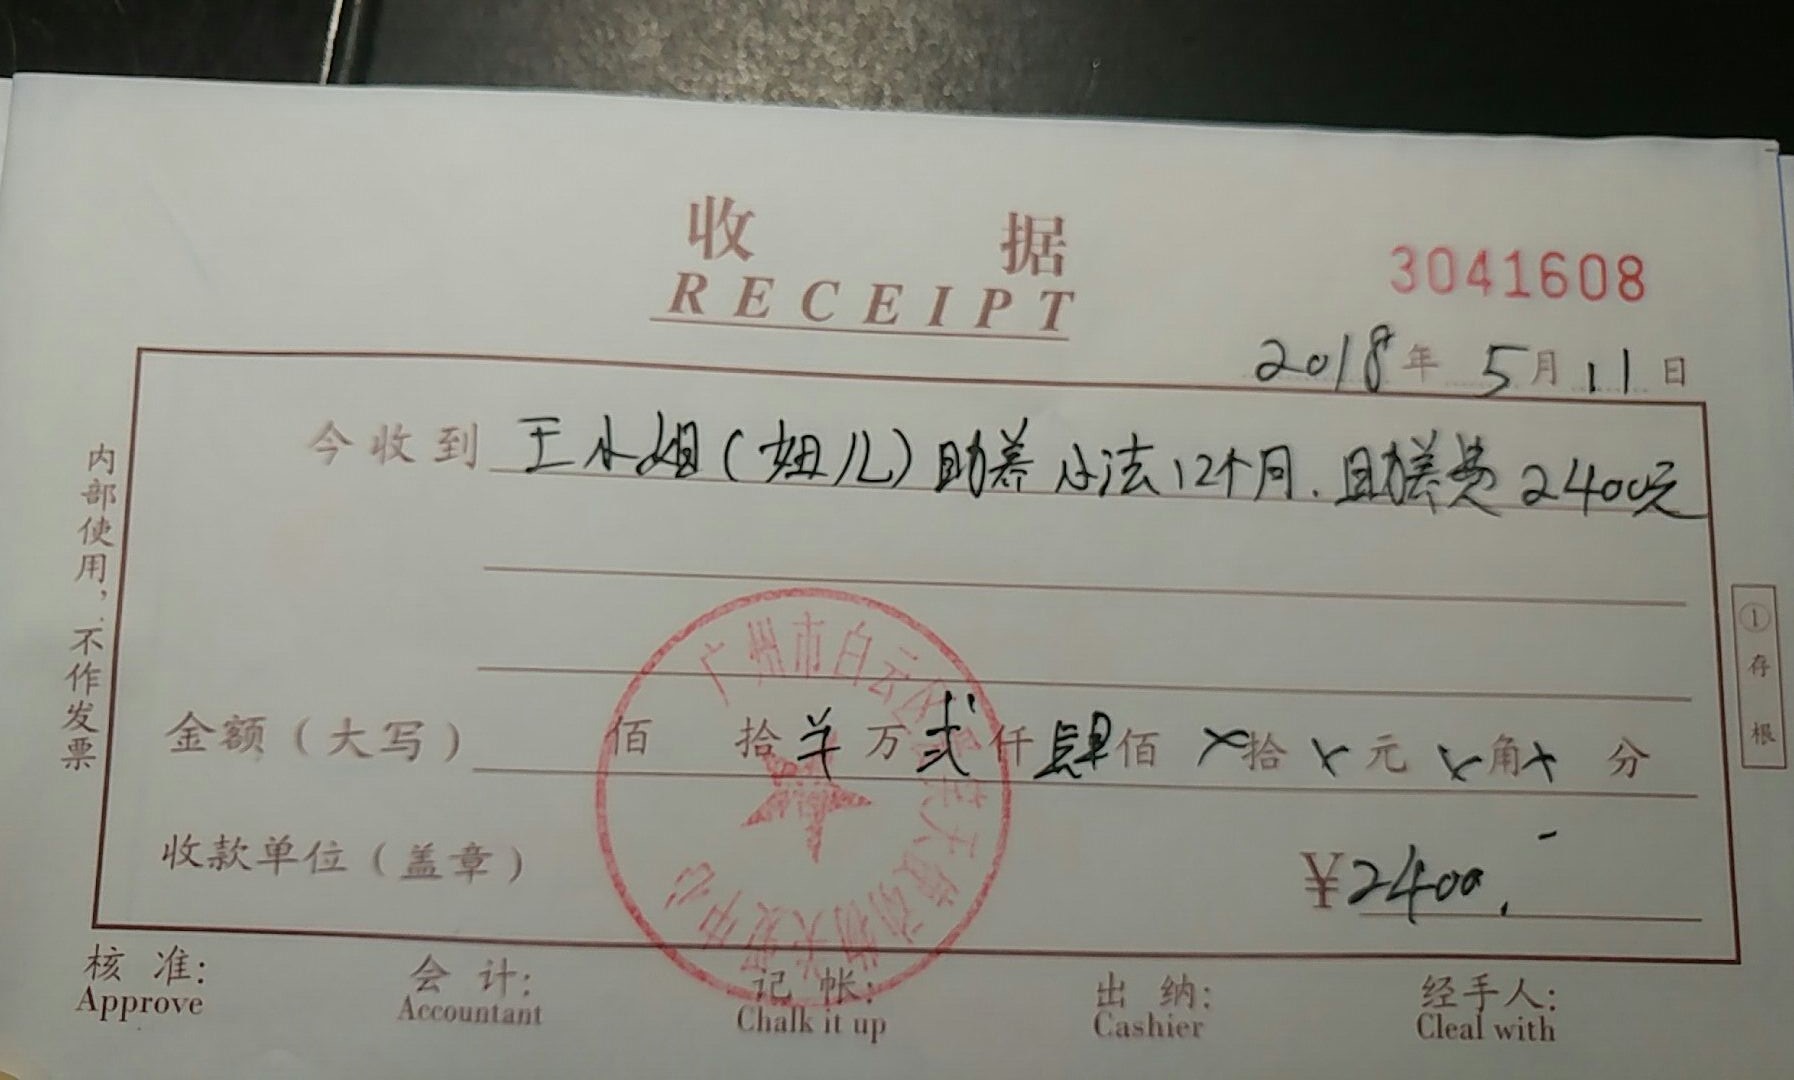 收据
RECEIPT
3041608
2018年5月11日
今收到 王小姐(妞儿)助养小法12个月.助养费2400元
金额(大写) 佰 拾 万 贰仟肆佰 ×拾 ×元 ×角× 分
收款单位(盖章) ¥2400.
广州市白云 天使动物 中心
核准: 会计: 记帐: 出纳: 经手人:
Approve Accountant Chalk it up Cashier Cleal with
内部使用,不作发票
①存根